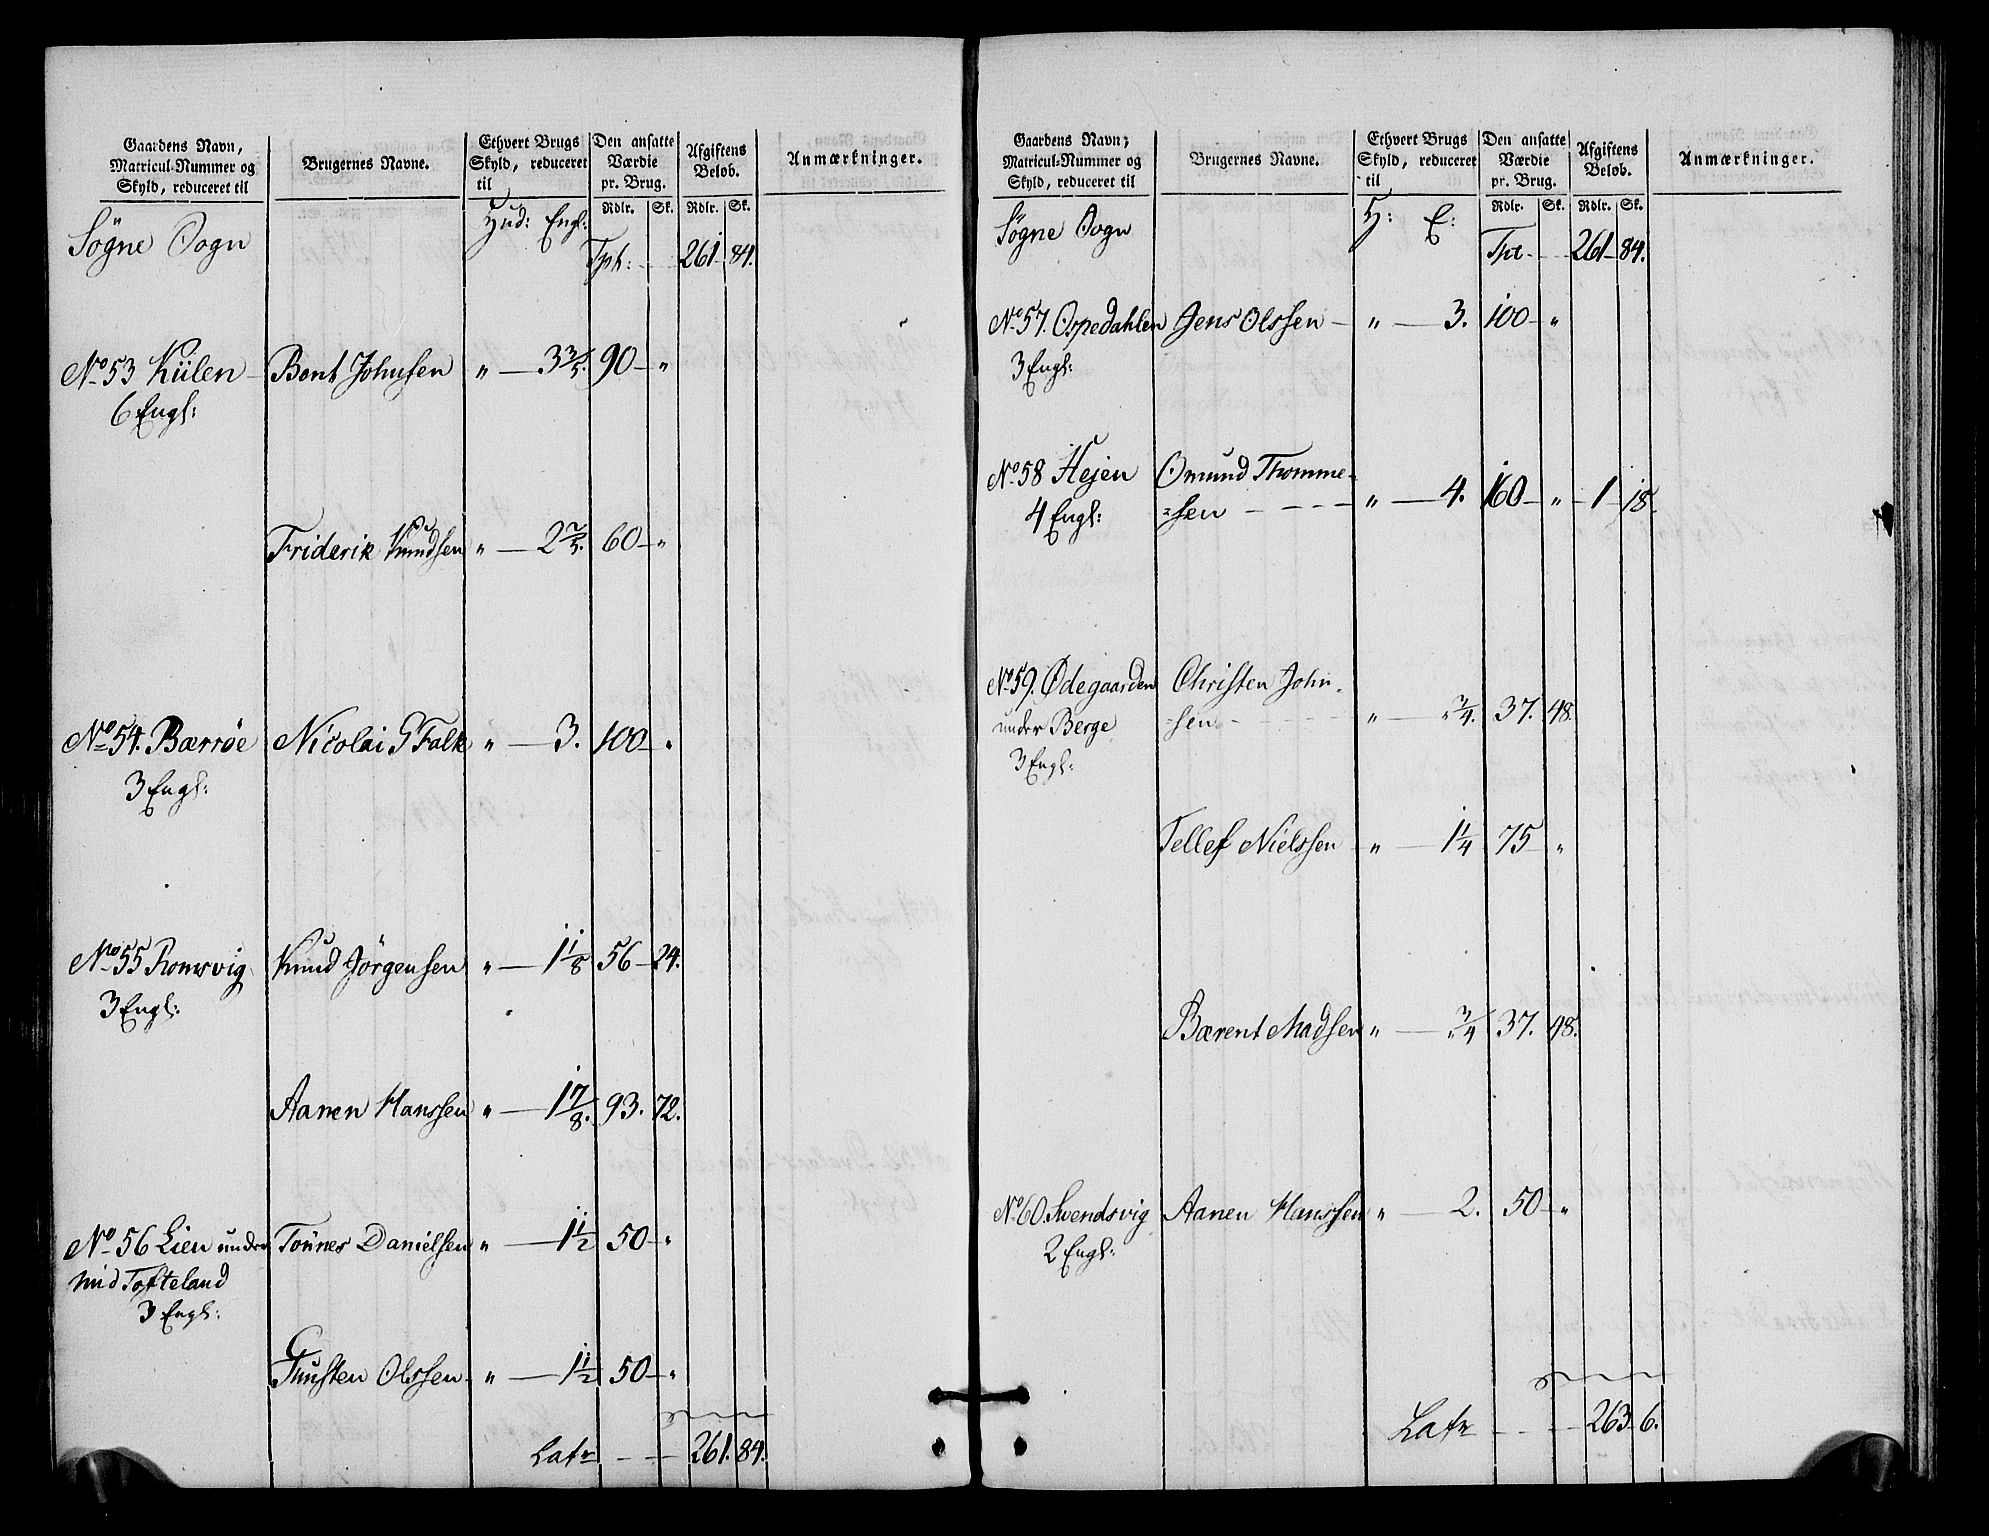 Gaardens Navn, Matricul-Nummer og Skyld, reduceret til | Brugernes Navne. | Ethvert Brugs Skyld, reduceret til | Den ansatte Værdie pr. Brug. | Afgiftens Beløb. | Anmærkninger.
Hud: Engl: | Rdlr. | Sk. | Rdlr. | Sk.
Søgne Sogn Tpt: - - 261 84.
No 53 Kiilen Bent Johnsen " — 3 3/5. 90 — "
6 Engl:
Friderik Knudsen " — 2 2/5. 60 — "
No 54. Bærrøe Nicolai G Falk " — 3. 100 — "
3 Engl:
No 55 Romsvig Knud Jörgensen " — 1 1/8 56 — 24.
3 Engl:
Aanen Hanssen " — 1 7/8. 93. 72.
No 56 Lien under Tönnes Danielsen " — 1 1/2 50 — "
mid Tofteland
3 Engl:
Gunsten Olssen " — 1 1/2 50 — "
Latr - - - 261. 84.
Gaardens Navn, Matricul-Nummer og Skyld, reduceret til | Brugernes Navne. | Ethvert Brugs Skyld, reduceret til | Den ansatte Værdie pr. Brug. | Afgiftens Beløb. | Anmærkninger.
H: E: | Rdlr. | Sk. | Rdlr. | Sk.
Søgne Sogn Tpt - - 261 84.
No 57. Ospedahlen Jens Olssen — " — 3. 100 — "
3 Engl:
No 58 Hejen Omund Thomme-
4 Engl: =sen - - - - " — 4. 160 — " — 1 18.
No 59. Ødegaarden Christen John-
under Berge =sen - - - - " — " 3/4. 37. 48.
3 Engl:
Tellef Nielssen — " — 1 1/4 75 — "
Bærent Madsen " — " 3/4 37. 48.
No 60. Svendsvig Aanen Hanssen " — 2. 50 — "
2 Engl:
Latr - - - - 263 6.